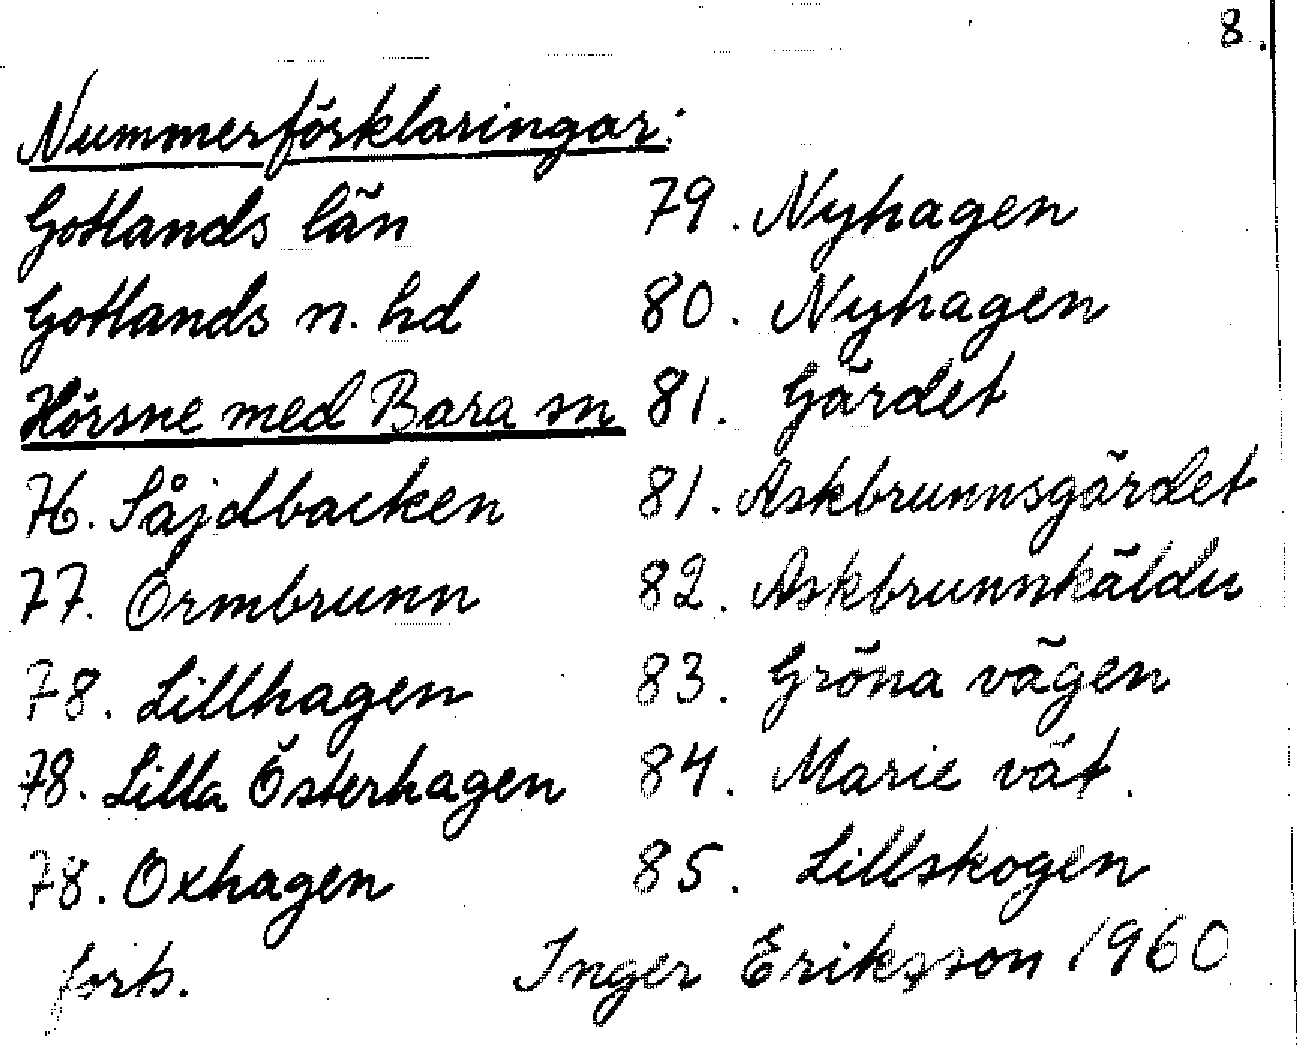 8.
Nummerförklaringar:
Gotlands län
Gotlands n. hd
Hörsne med Bara sn
76. Såjdbacken
77. Ormbrunn
78. Lillhagen
78. Lilla Österhagen
78. Oxhagen
79. Nyhagen
80. Nyhagen
81. Gärdet
81. Askbrunnsgärdet
82. Askbrunnkäldu
83. Gröna vägen
84. Marie vät.
85. Lillskogen
forts.
Inger Eriksson 1960